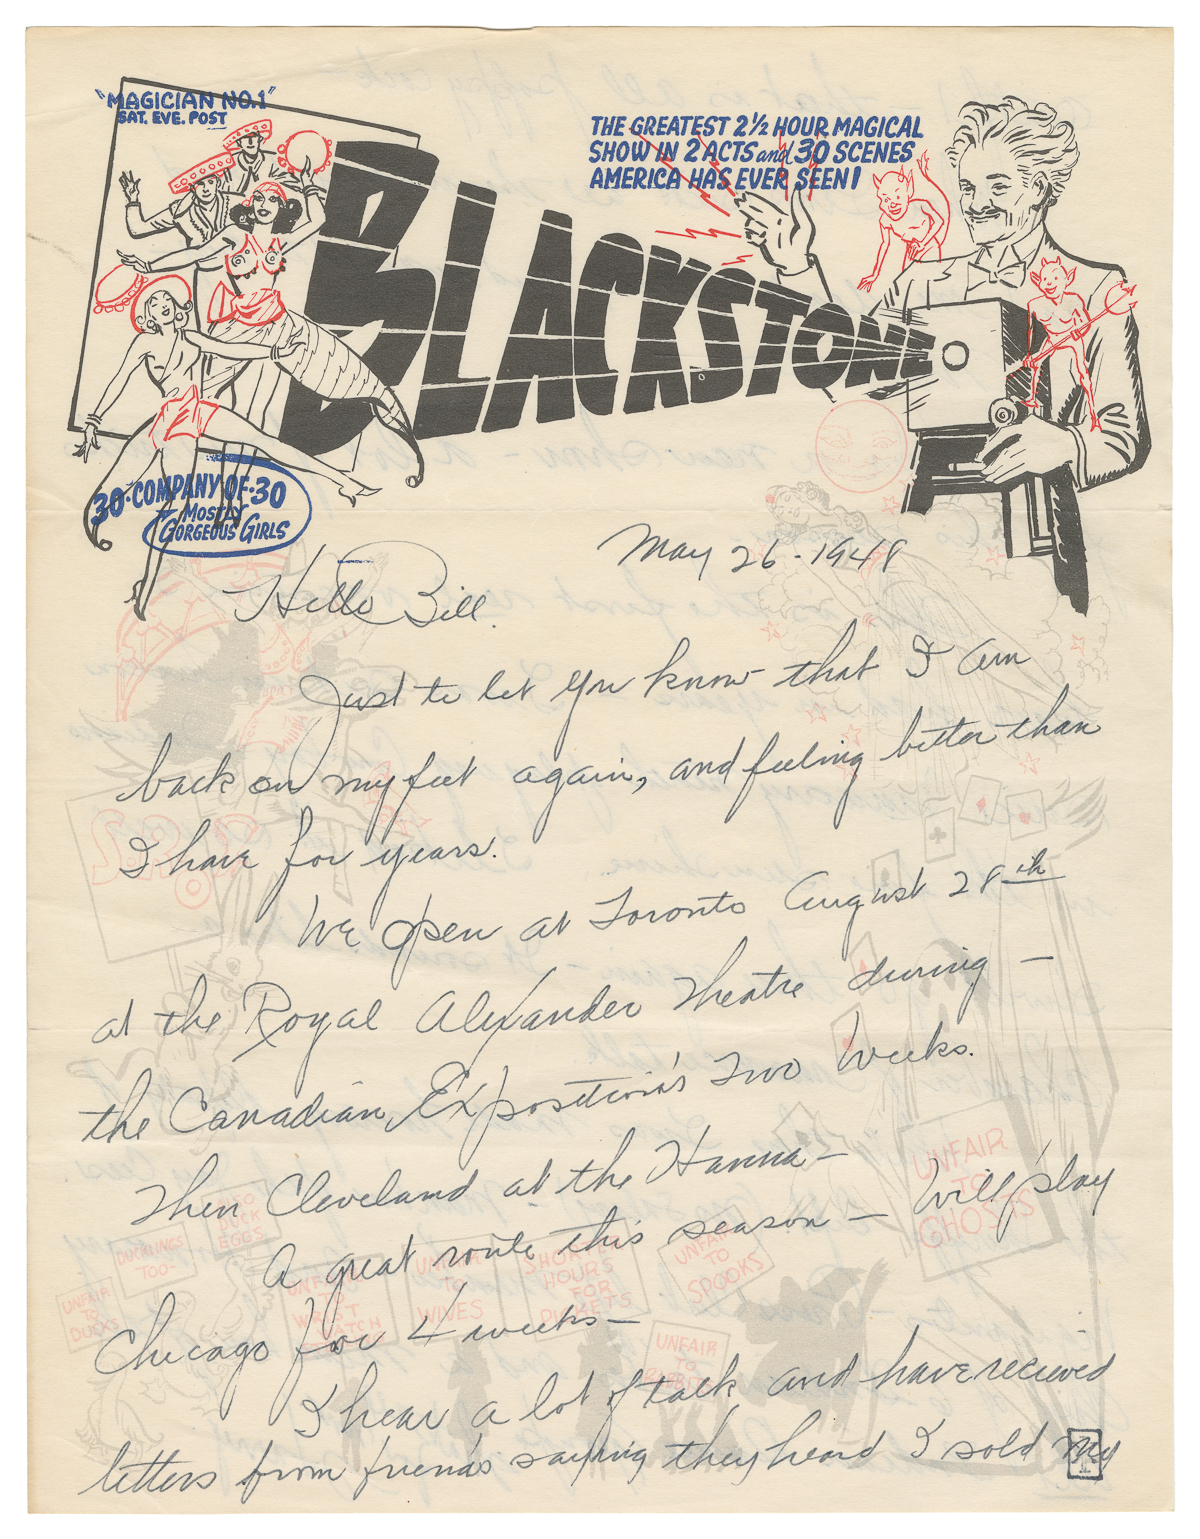 "MAGICIAN NO.1"
SAT. EVE. POST
THE GREATEST 2½ HOUR MAGICAL
SHOW IN 2 ACTS and 30 SCENES
AMERICA HAS EVER SEEN!
BLACKSTONE
30·COMPANY·OF·30
MOSTLY
GORGEOUS GIRLS
May 26-1948
Hello Bill.
Just to let you know that I am
back on my feet again, and feeling better than
I have for years.
We open at Toronto August 28th
at the Royal Alexander Theatre during —
the Canadian, Exposition's Two Weeks.
Then Cleveland at the Hanna —
A great route this season — Will play
Chicago for 4 weeks —
I hear a lot of talk and have recieved
letters from friends saying they heard I sold my
UNFAIR
TO
GHOSTS
DUCK
EGGS
DUCKLINGS
TOO-
UNFAIR
TO
DUCKS
UNFAIR
TO
WRIST
WATCH
UNFAIR
TO
WIVES
SHORTER
HOURS
FOR
PICKETS
UNFAIR
TO
SPOOKS
UNFAIR
TO
RABBITS